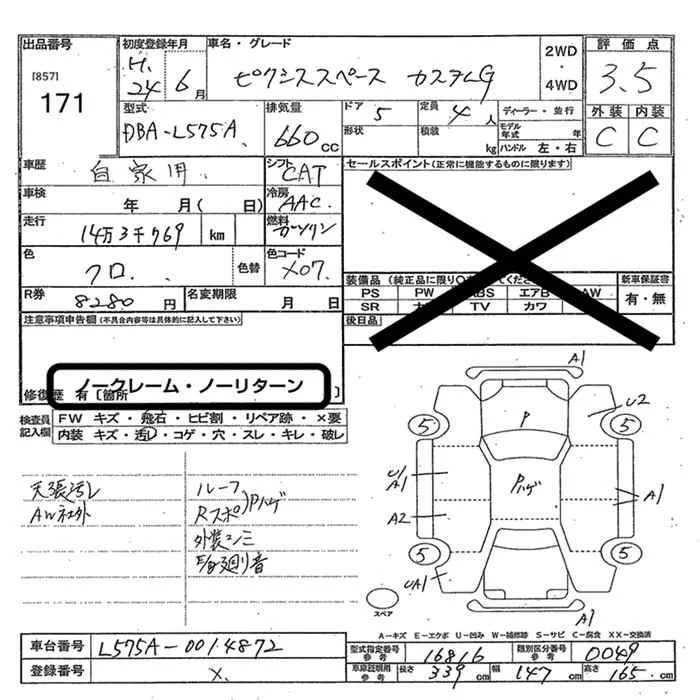 出品番号 初度登録年月 車名・グレード 2WD・4WD 評価点
[857] 171 H.24年 6月 ピクシススペース カスタムG 3.5
型式 排気量 ドア 5 定員 4人 ディーラー・並行 外装 内装
DBA-L575A 660cc 形状 積載 kg モデル年式 年 ハンドル 左・右 C C
車歴 自家用 シフト CAT セールスポイント(正常に機能するものに限ります)
車検 年 月( 日) 冷房 AAC.
走行 14万3千769 km 燃料 ガソリン
色 クロ. 色替 色コード X07.
装備品(純正品に限り○ てください) 新車保証書
PS PW ABS エアB AW 有・無
SR TV カワ
R券 8280円 名変期限 月 日
後日品
注意事項申告欄(不具合内容等は具体的に記入して下さい)
ノークレーム・ノーリターン
修復歴 有[箇所 ]
検査員記入欄 FW キズ・飛石・ヒビ割・リペア跡・×要
内装 キズ・汚レ・コゲ・穴・スレ・キレ・破レ
天張汚レ
AW社外
ルーフ
Rスポ Pハゲ
外装コミ
廻り音
A1
U2
P
5 5
U/A1
Pハゲ
A1
A2
5 5
UA1
A1
スペア
A-キズ E-エクボ U-凹み W-補修跡 S-サビ C-腐食 XX-交換済
車台番号 L575A-0014872
登録番号 X.
型式指定番号 参考 16816 類別区分番号 参考 0049
車庫証明用 参考 長さ 339cm 幅 147cm 高さ 165cm